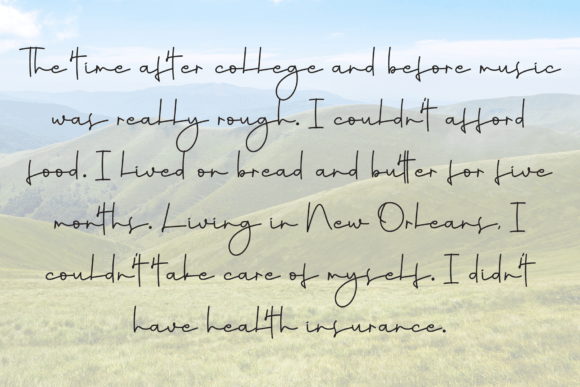 The time after college and before music
was really rough. I couldn't afford
food. I lived on bread and butter for five
months. Living in New Orleans, I
couldn't take care of myself. I didn't
have health insurance.